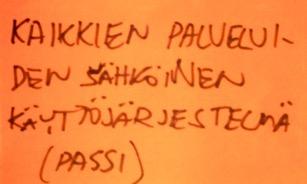 KAIKKIEN PALVELUI-
DEN SÄHKÖINEN
KÄYTTÖJÄRJESTELMÄ
(PASSI)